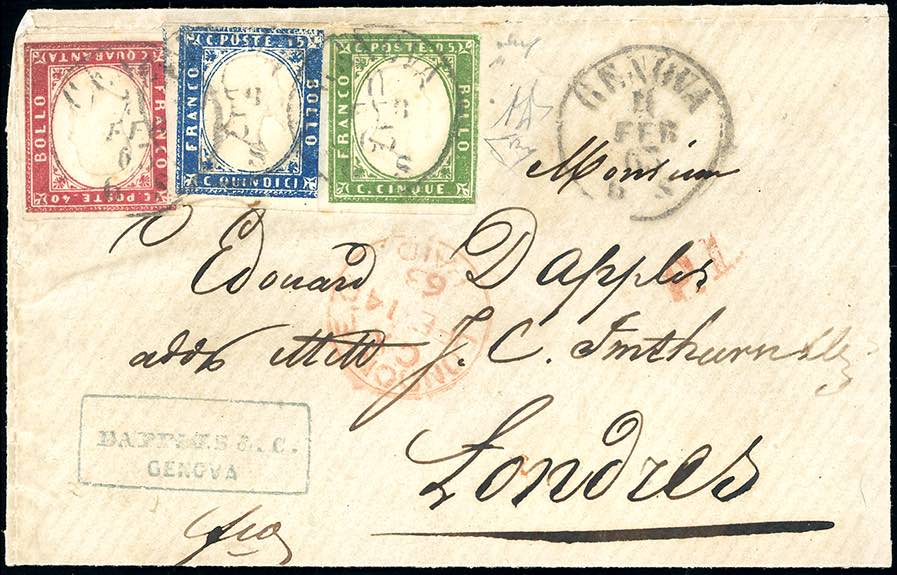 C. QUARANTA
BOLLO
FRANCO
C. POSTE 40
C. POSTE. 15
FRANCO
BOLLO
C. QUINDICI
C. POSTE. 05
FRANCO
BOLLO
C. CINQUE
GENOVA
11
FEB
63
Monsieur
Edouard Dapples
LONDON
14
63
PAID
P.D.
J. C. Imthurn
DAPPLES & C.
GENOVA
Londres